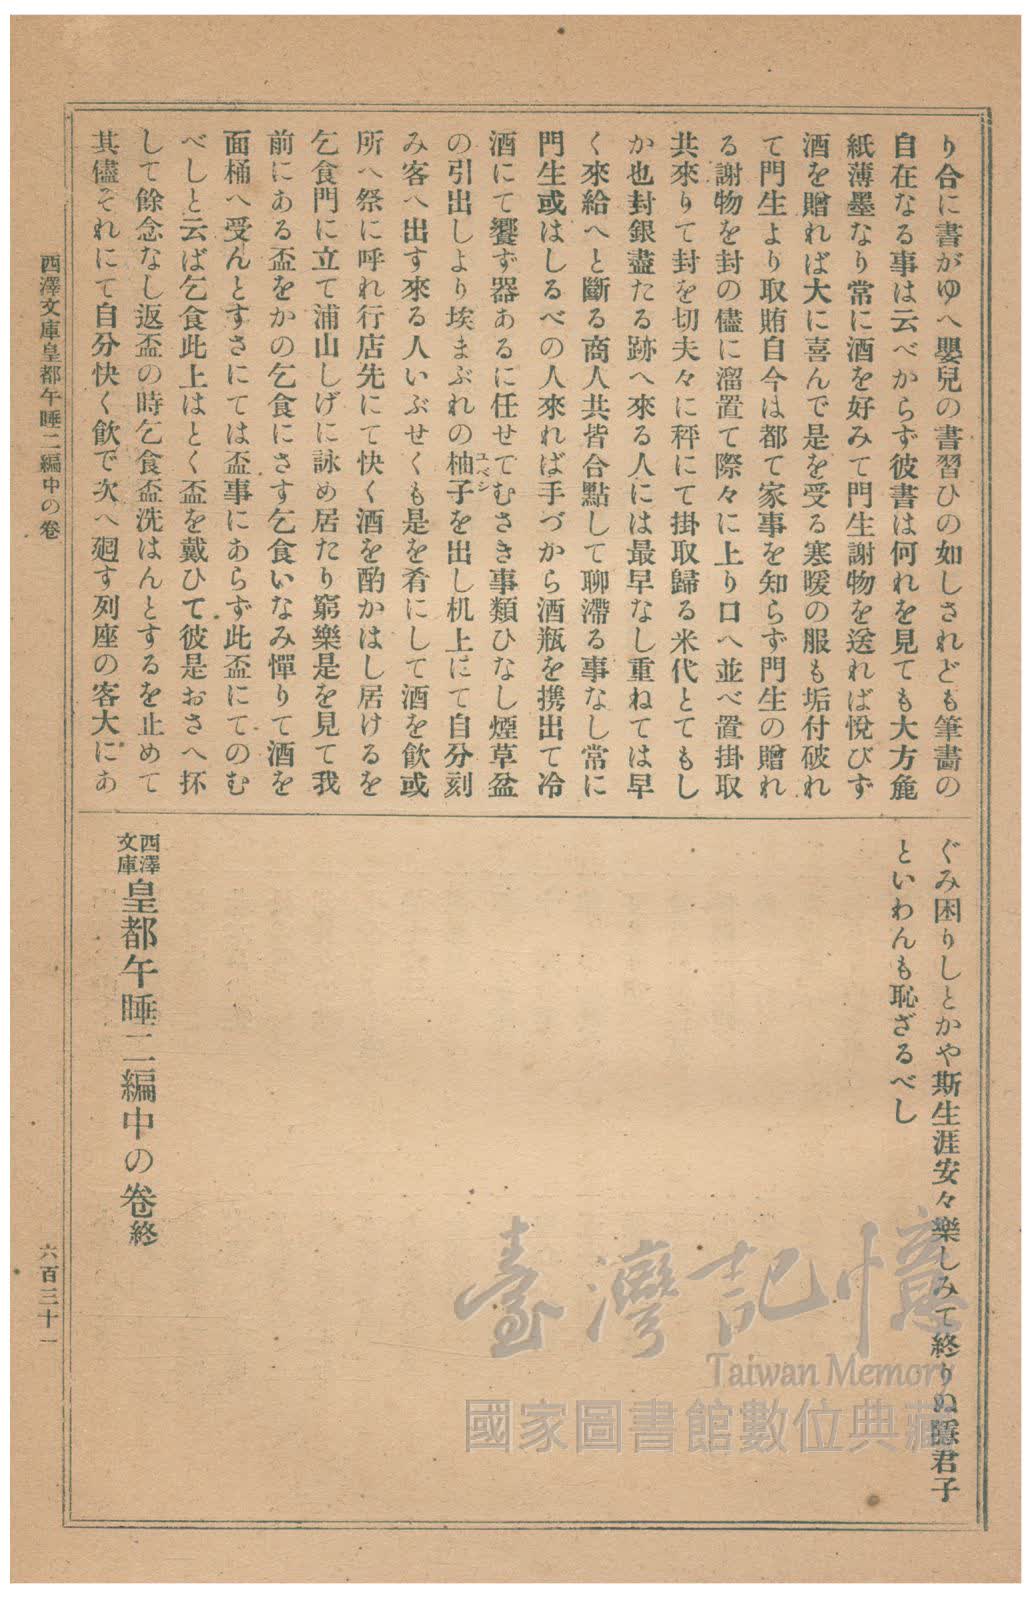 り合に書がゆへ嬰兒の書習ひの如しされども筆畵の
自在なる事は云べからず彼書は何れを見ても大方麁
紙薄墨なり常に酒を好みて門生謝物を送れば悅びず
酒を贈れば大に喜んで是を受る寒暖の服も垢付破れ
て門生より取賄自今は都て家事を知らず門生の贈れ
る謝物を封の儘に溜置て際々に上り口へ並べ置掛取
共來りて封を切夫々に秤にて掛取歸る米代とてもし
か也封銀盡たる跡へ來る人には最早なし重ねては早
く來給へと斷る商人共皆合點して聊滯る事なし常に
門生或はしるべの人來れば手づから酒瓶を携出て冷
酒にて饗ず器あるに任せてむさき事類ひなし煙草盆
の引出しより埃まぶれの柚子ユベシを出し机上にて自分刻
み客へ出す來る人いぶせくも是を肴にして酒を飮或
所へ祭に呼れ行店先にて快く酒を酌かはし居けるを
乞食門に立て浦山しげに詠め居たり窮樂是を見て我
前にある盃をかの乞食にさす乞食いなみ憚りて酒を
面桶へ受んとすさにては盃事にあらず此盃にてのむ
べしと云ば乞食此上はとく盃を戴ひて彼是おさへ抔
して餘念なし返盃の時乞食盃洗はんとするを止めて
其儘それにて自分快く飮で次へ廻す列座の客大にあ
ぐみ困りしとかや斯生涯安々樂しみて終りぬ隱君子
といわんも恥ざるべし
西澤文庫皇都午睡二編中の卷終
西澤文庫皇都午睡二編中の卷
六百三十一
臺灣記憶
Taiwan Memory
國家圖書館數位典藏